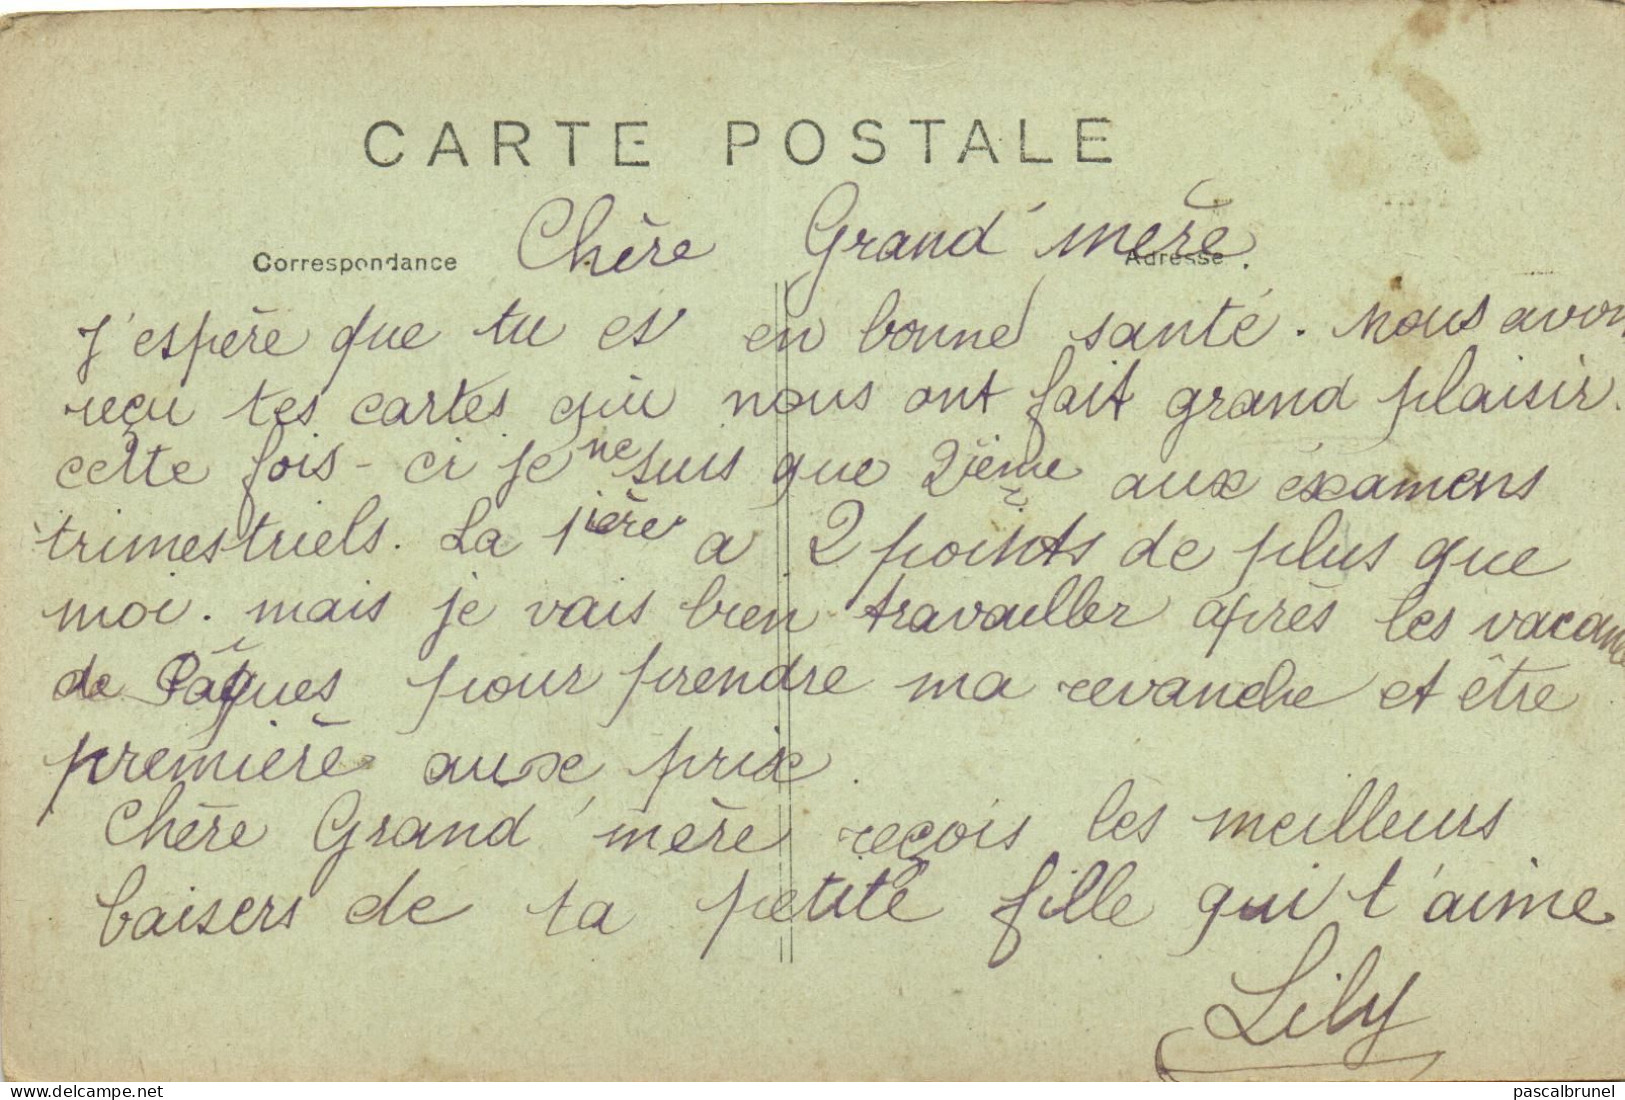 CARTE POSTALE
Correspondance
Adresse
Chère Grand'mère
J'espère que tu es en bonne santé. Nous avons
reçu tes cartes qui nous ont fait grand plaisir.
cette fois-ci je ne suis que 2ième aux examens
trimestriels. La 1ière a 2 points de plus que
moi. mais je vais bien travailler après les vacances
de Pâques pour prendre ma revanche et être
première aux prix.
Chère Grand'mère reçois les meilleurs
baisers de ta petite fille qui t'aime
Lily
delcampe.net
pascalbrunel